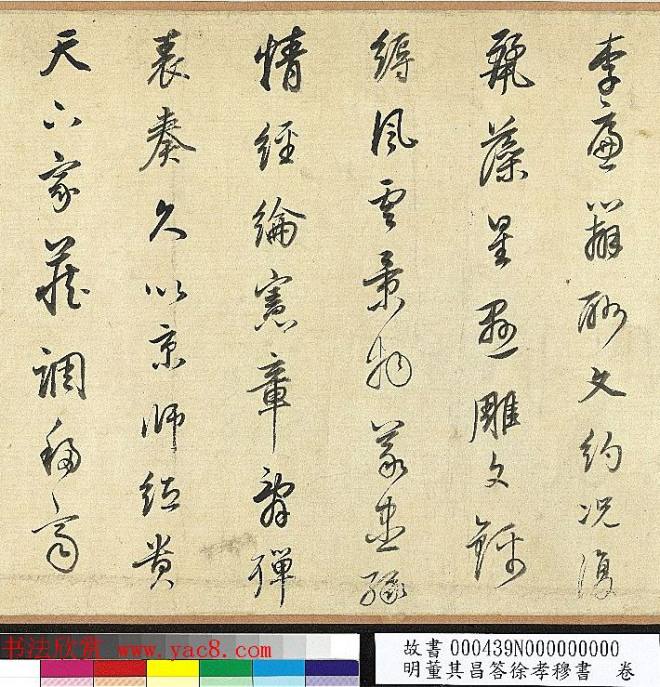 李廉酬文約況復
麗藻星懸雕文錦
縟風雲景物義盡緣
情經綸憲章辭殫
表奏久以京師紙貴
天下家藏調移齊
书法欣赏 www.yac8.com
故書 000439N000000000
明董其昌答徐孝穆書 卷